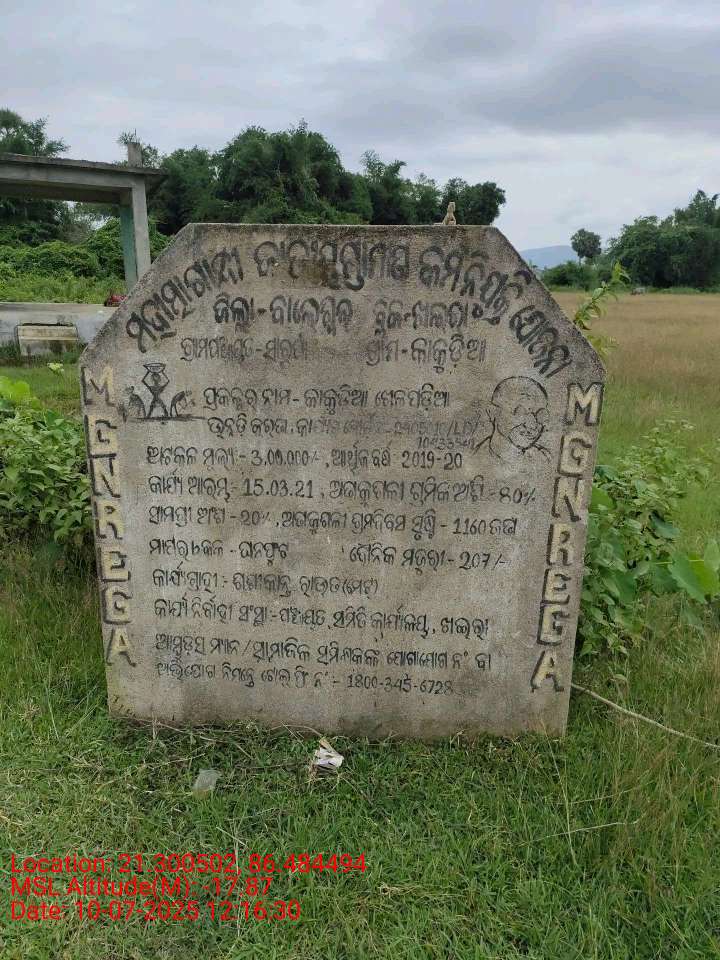 ମହାତ୍ମାଗାନ୍ଧୀ ଜାତୀୟ ଗ୍ରାମୀଣ ନିଯୁକ୍ତି ଯୋଜନା
ଜିଲ୍ଲା-ବାଲେଶ୍ୱର ବ୍ଲକ-ଖଇରା
ଗ୍ରାମପଞ୍ଚାୟତ- ଗ୍ରାମ-କାକୁଡ଼ିଆ
ପ୍ରକଳ୍ପର ନାମ- କାକୁଡିଆ ଖେଳପଡ଼ିଆ
ଉନ୍ନତି କରଣ,
ଅଟକଳ ମୂଲ୍ୟ-3,00,000/-, ଆର୍ଥିକ ବର୍ଷ 2019-20
କାର୍ଯ୍ୟ ଆରମ୍ଭ-15.03.21, ଅଣକୁଶଳୀ ଶ୍ରମିକ ଅଂଶ-80%
ସାମଗ୍ରୀ ଅଂଶ-20%, ଅଣକୁଶଳୀ ଶ୍ରମଦିବସ ସୃଷ୍ଟି-1160
ଘନଫୁଟ ଦୈନିକ ମଜୁରୀ-207/-
ରାଉତ(ମେଟ୍)
କାର୍ଯ୍ୟ ନିର୍ବାହୀ ସଂସ୍ଥା-ପଞ୍ଚାୟତ ସମିତି କାର୍ଯ୍ୟାଳୟ, ଖଇରା
ସାମାଜିକ ଯୋଗାଯୋଗ ନଂ ବା
ଅଭିଯୋଗ ନିମନ୍ତେ ଟୋଲ୍ ଫ୍ରି ନଂ-1800-345-6728
MGNREGA
MGNREGA
Location: 21.300502, 86.484494
MSL Altitude(M): -17.87
Date: 10-07-2025 12:16:30